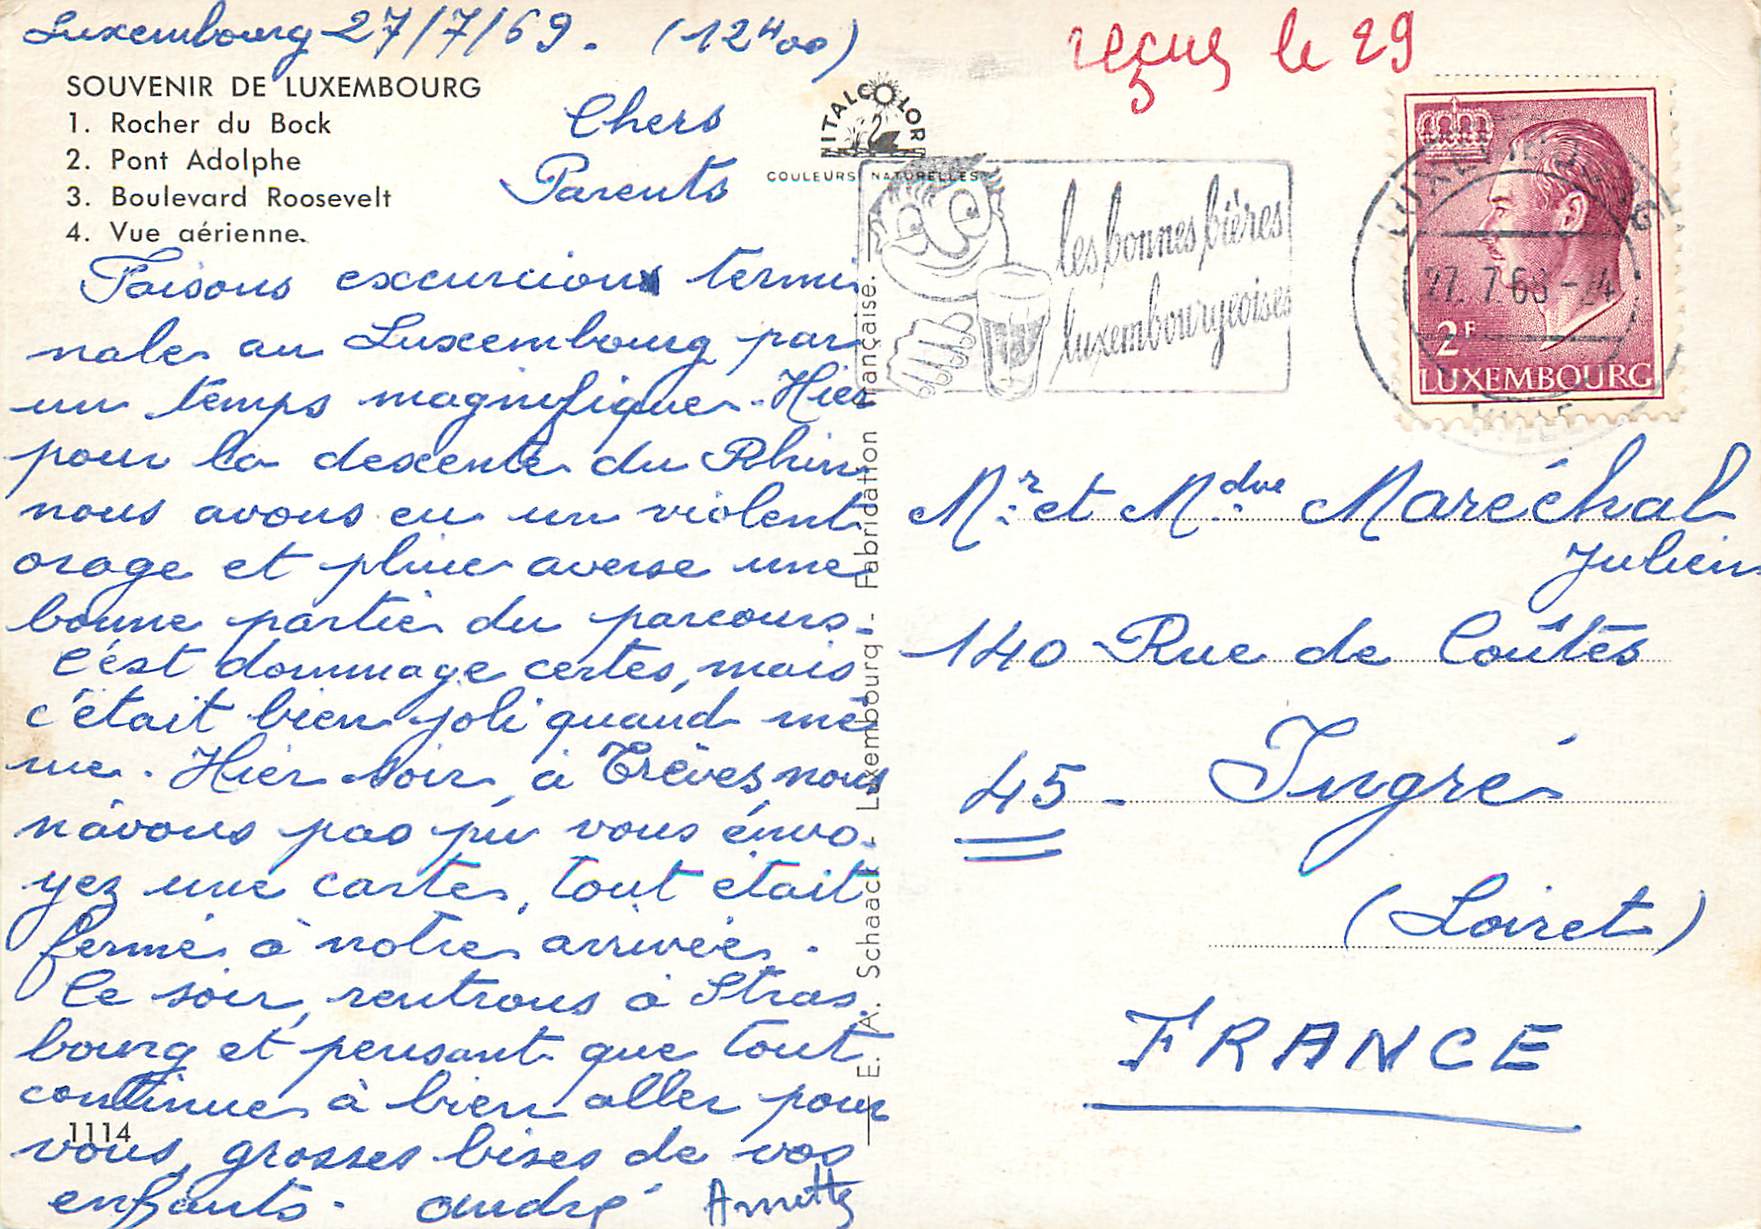 Luxembourg 27/7/69. (12H00)
reçues le 29
SOUVENIR DE LUXEMBOURG
1. Rocher du Bock
2. Pont Adolphe
3. Boulevard Roosevelt
4. Vue aérienne.
Chers
Parents
Faisons excurcion termi
nale au Luxembourg par
un temps magnifique. Hier
pour la descente du Rhin
nous avons eu un violent
orage et pluie averse une
bonne partie du parcours.
C'est dommage certes, mais
c'était bien joli quand mê
me. Hier soir, à Trèves nous
n'avons pas pu vous envo-
yez une carte, tout était
fermé à notre arrivée.
Ce soir, rentrons à Stras.
bourg et pensant que tout
continue à bien aller pour
vous, grosses bises de vos
enfants. andré Annette
1114
ITALCOLOR
COULEURS NATURELLES
E. A. Schaack - Luxembourg - Fabridation française.
les bonnes bières
luxembourgeoises
LUXEMBOURG
27. 7.69-
VILLE
2F
LUXEMBOURG
Mr. et Mdme Maréchal
Julien
140 Rue de Coûtes
45 - Ingré
(Loiret)
FRANCE